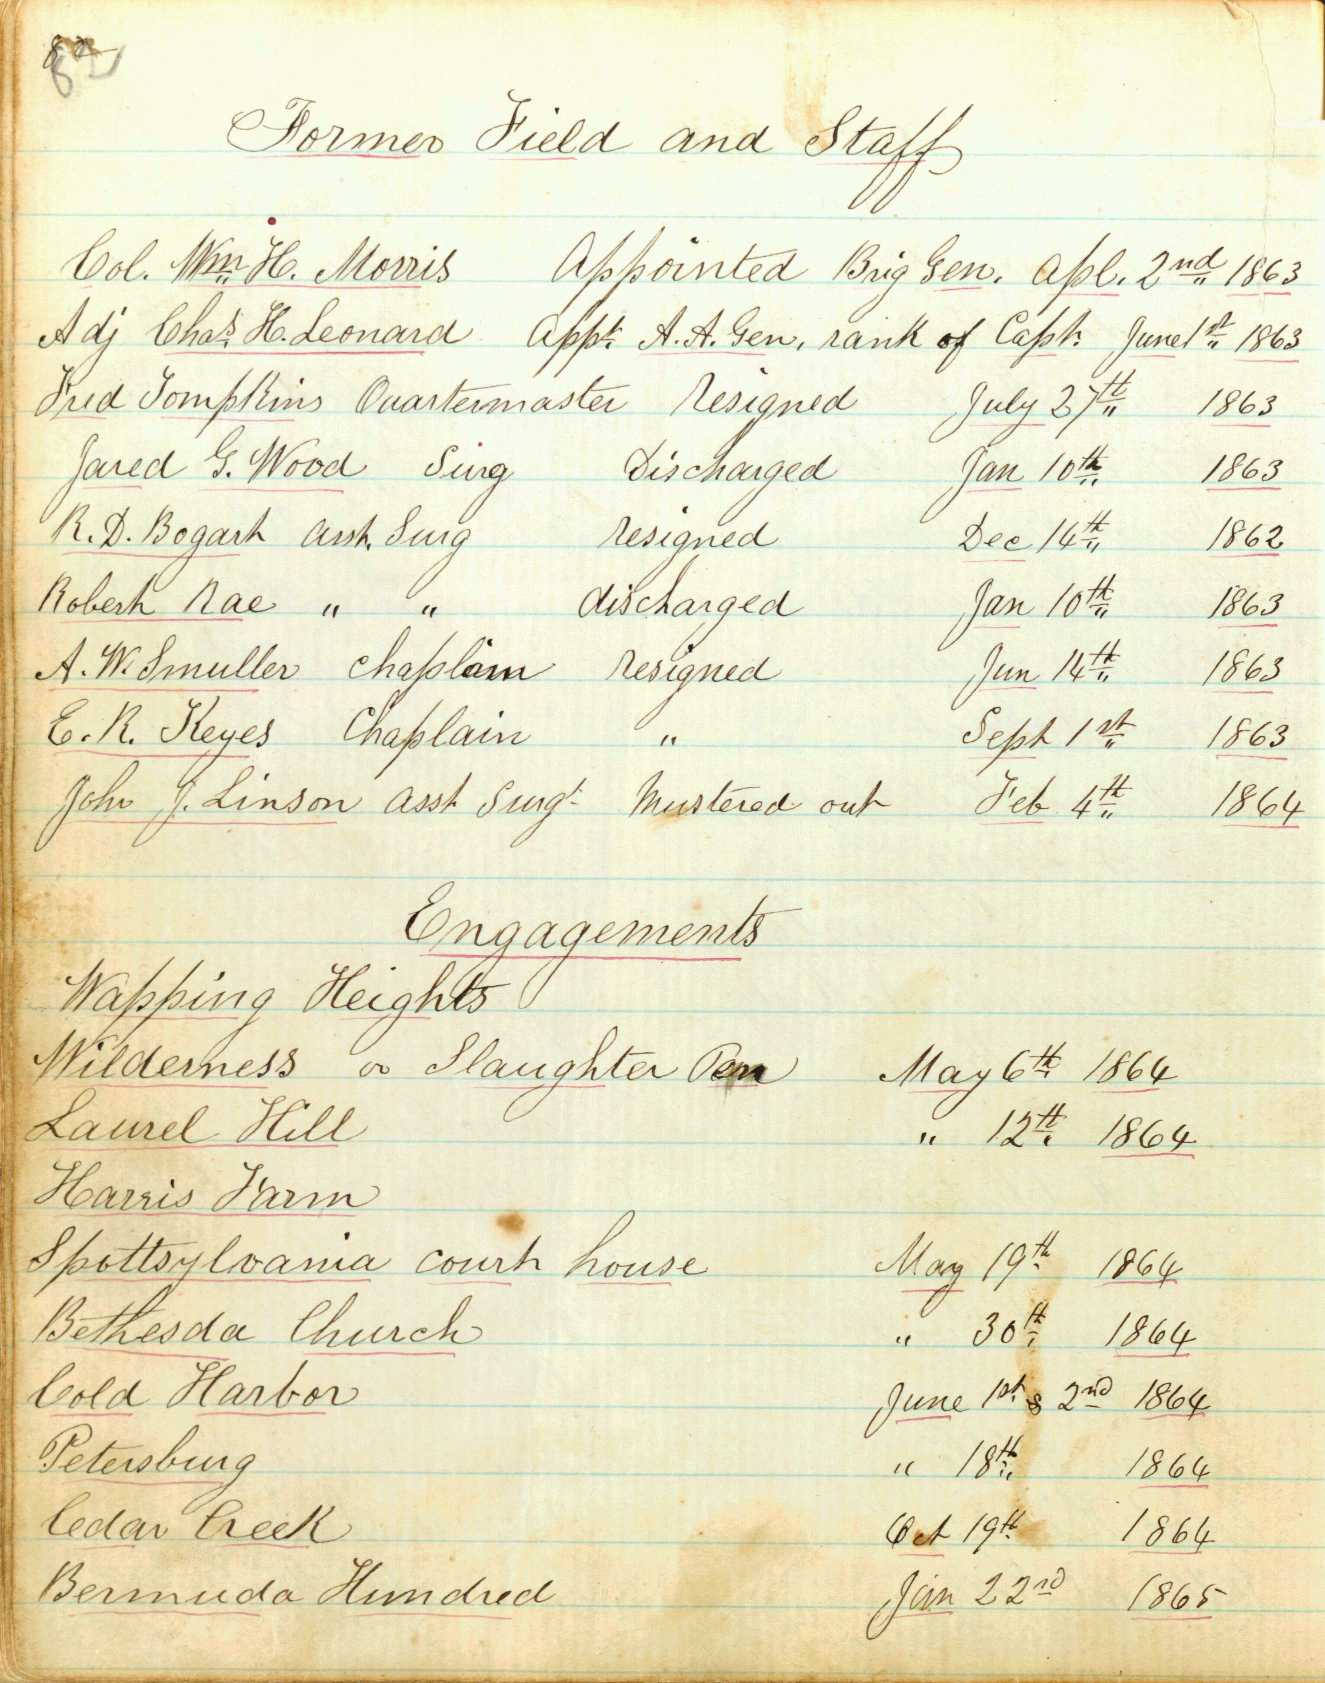 82
Former Field and Staff
Col. Wm H. Morris Appointed Brig Gen. Apl. 2nd 1863
Adj Chas H. Leonard Appt. A. A. Gen, rank of Capt. June 1st 1863
Fred Tompkins Quartermaster Resigned July 27th 1863
Jared G. Wood Surg Discharged Jan 10th 1863
R. D. Bogart Asst. Surg resigned Dec 14th 1862
Robert Rae " " discharged Jan 10th 1863
A. W. Smuller chaplain resigned Jun 14th 1863
E. R. Keyes Chaplain " Sept 1st 1863
John J. Linson Asst Surgt Mustered out Feb 4th 1864
Engagements
Wapping Heights
Wilderness or Slaughter Pen May 6th 1864
Laurel Hill " 12th 1864
Harris Farm
Spottsylvania court house May 19th 1864
Bethesda Church " 30th 1864
Cold Harbor June 1st & 2nd 1864
Petersburg " 18th 1864
Cedar Creek Oct 19th 1864
Bermuda Hundred Jan 22nd 1865